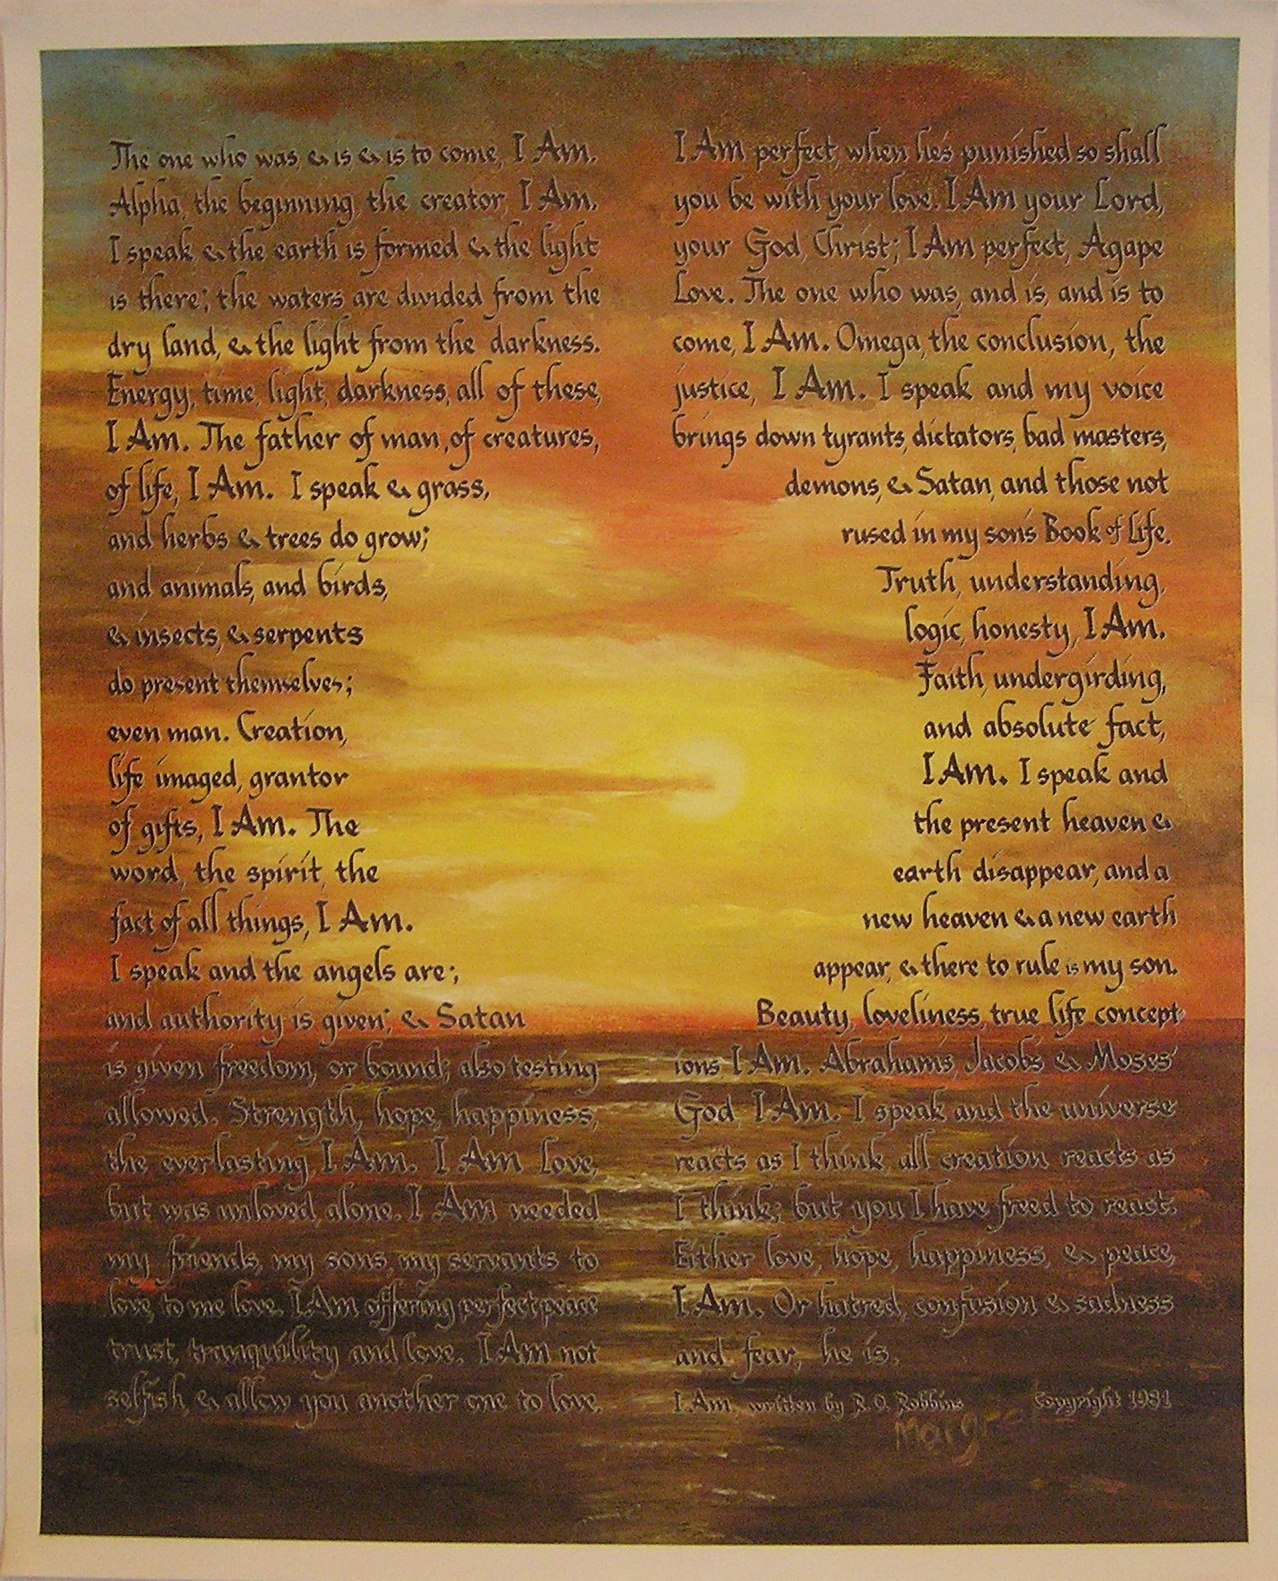 The one who was, & is & is to come, I Am.
Alpha, the beginning, the creator, I Am.
I speak & the earth is formed & the light
is there; the waters are divided from the
dry land, & the light from the darkness.
Energy, time, light, darkness, all of these,
I Am. The father of man, of creatures,
of life, I Am. I speak & grass,
and herbs & trees do grow;
and animals, and birds,
& insects, & serpents
do present themselves;
even man. Creation,
life imaged, grantor
of gifts, I Am. The
word, the spirit, the
fact of all things, I Am.
I speak and the angels are;
and authority is given; & Satan
is given freedom, or bound; also testing
allowed. Strength, hope, happiness,
the everlasting, I Am. I Am Love,
but was unloved, alone. I Am needed
my friends, my sons, my servants to
love, to me love. I Am offering perfect peace
trust, tranquility and love. I Am not
selfish, & allow you another one to love.
I Am perfect, when he's punished so shall
you be with your love. I Am your Lord,
your God, Christ; I Am perfect, Agape
Love. The one who was, and is, and is to
come, I Am. Omega, the conclusion, the
justice, I Am. I speak and my voice
brings down tyrants, dictators, bad masters,
demons, & Satan, and those not
rused in my son's Book of Life.
Truth, understanding,
logic, honesty, I Am.
Faith, undergirding,
and absolute fact,
I Am. I speak and
the present heaven &
earth disappear, and a
new heaven & a new earth
appear, & there to rule is my son.
Beauty, loveliness, true life concept
ions, I Am. Abraham's, Jacob's & Moses'
God, I Am. I speak and the universe
reacts as I think, all creation reacts as
I think; but you I have freed to react.
Either love, hope, happiness, & peace,
I Am. Or hatred, confusion & sadness
and fear, he is.
I Am, written by R.O. Robbins Copyright 1981